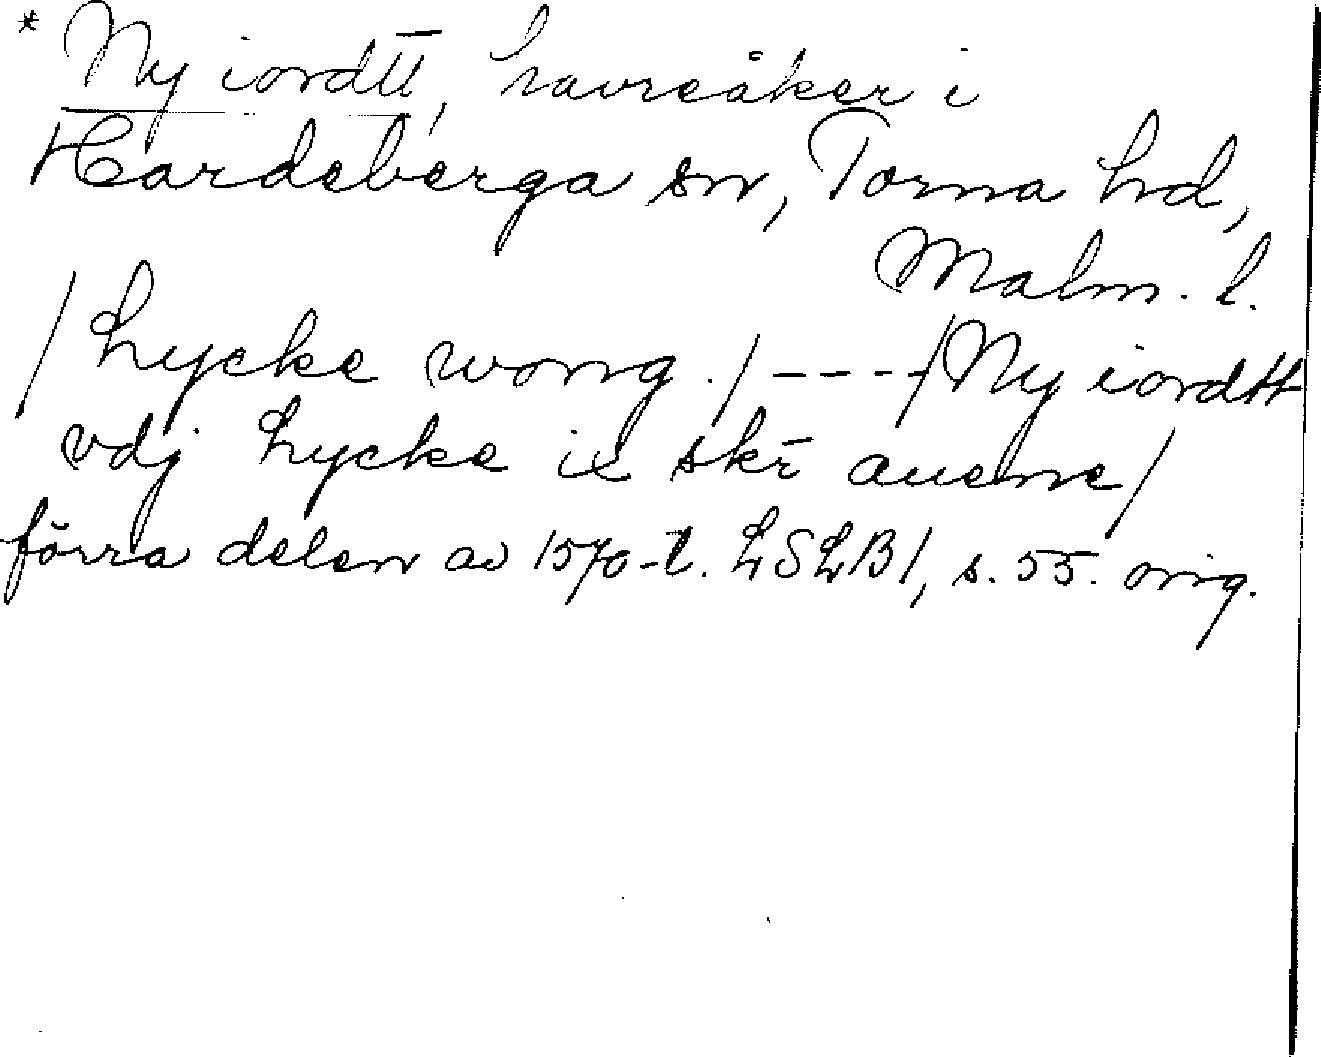 * Ny iordtt, havreåker i
Hardeberga sn, Torna hd,
Malm. l.
/ Lycke wong. / ---- / Ny iordtt
vdj Lycke ix skr̄ auene /
förra delen av 1570-t. LSLB1, s. 55. orig.